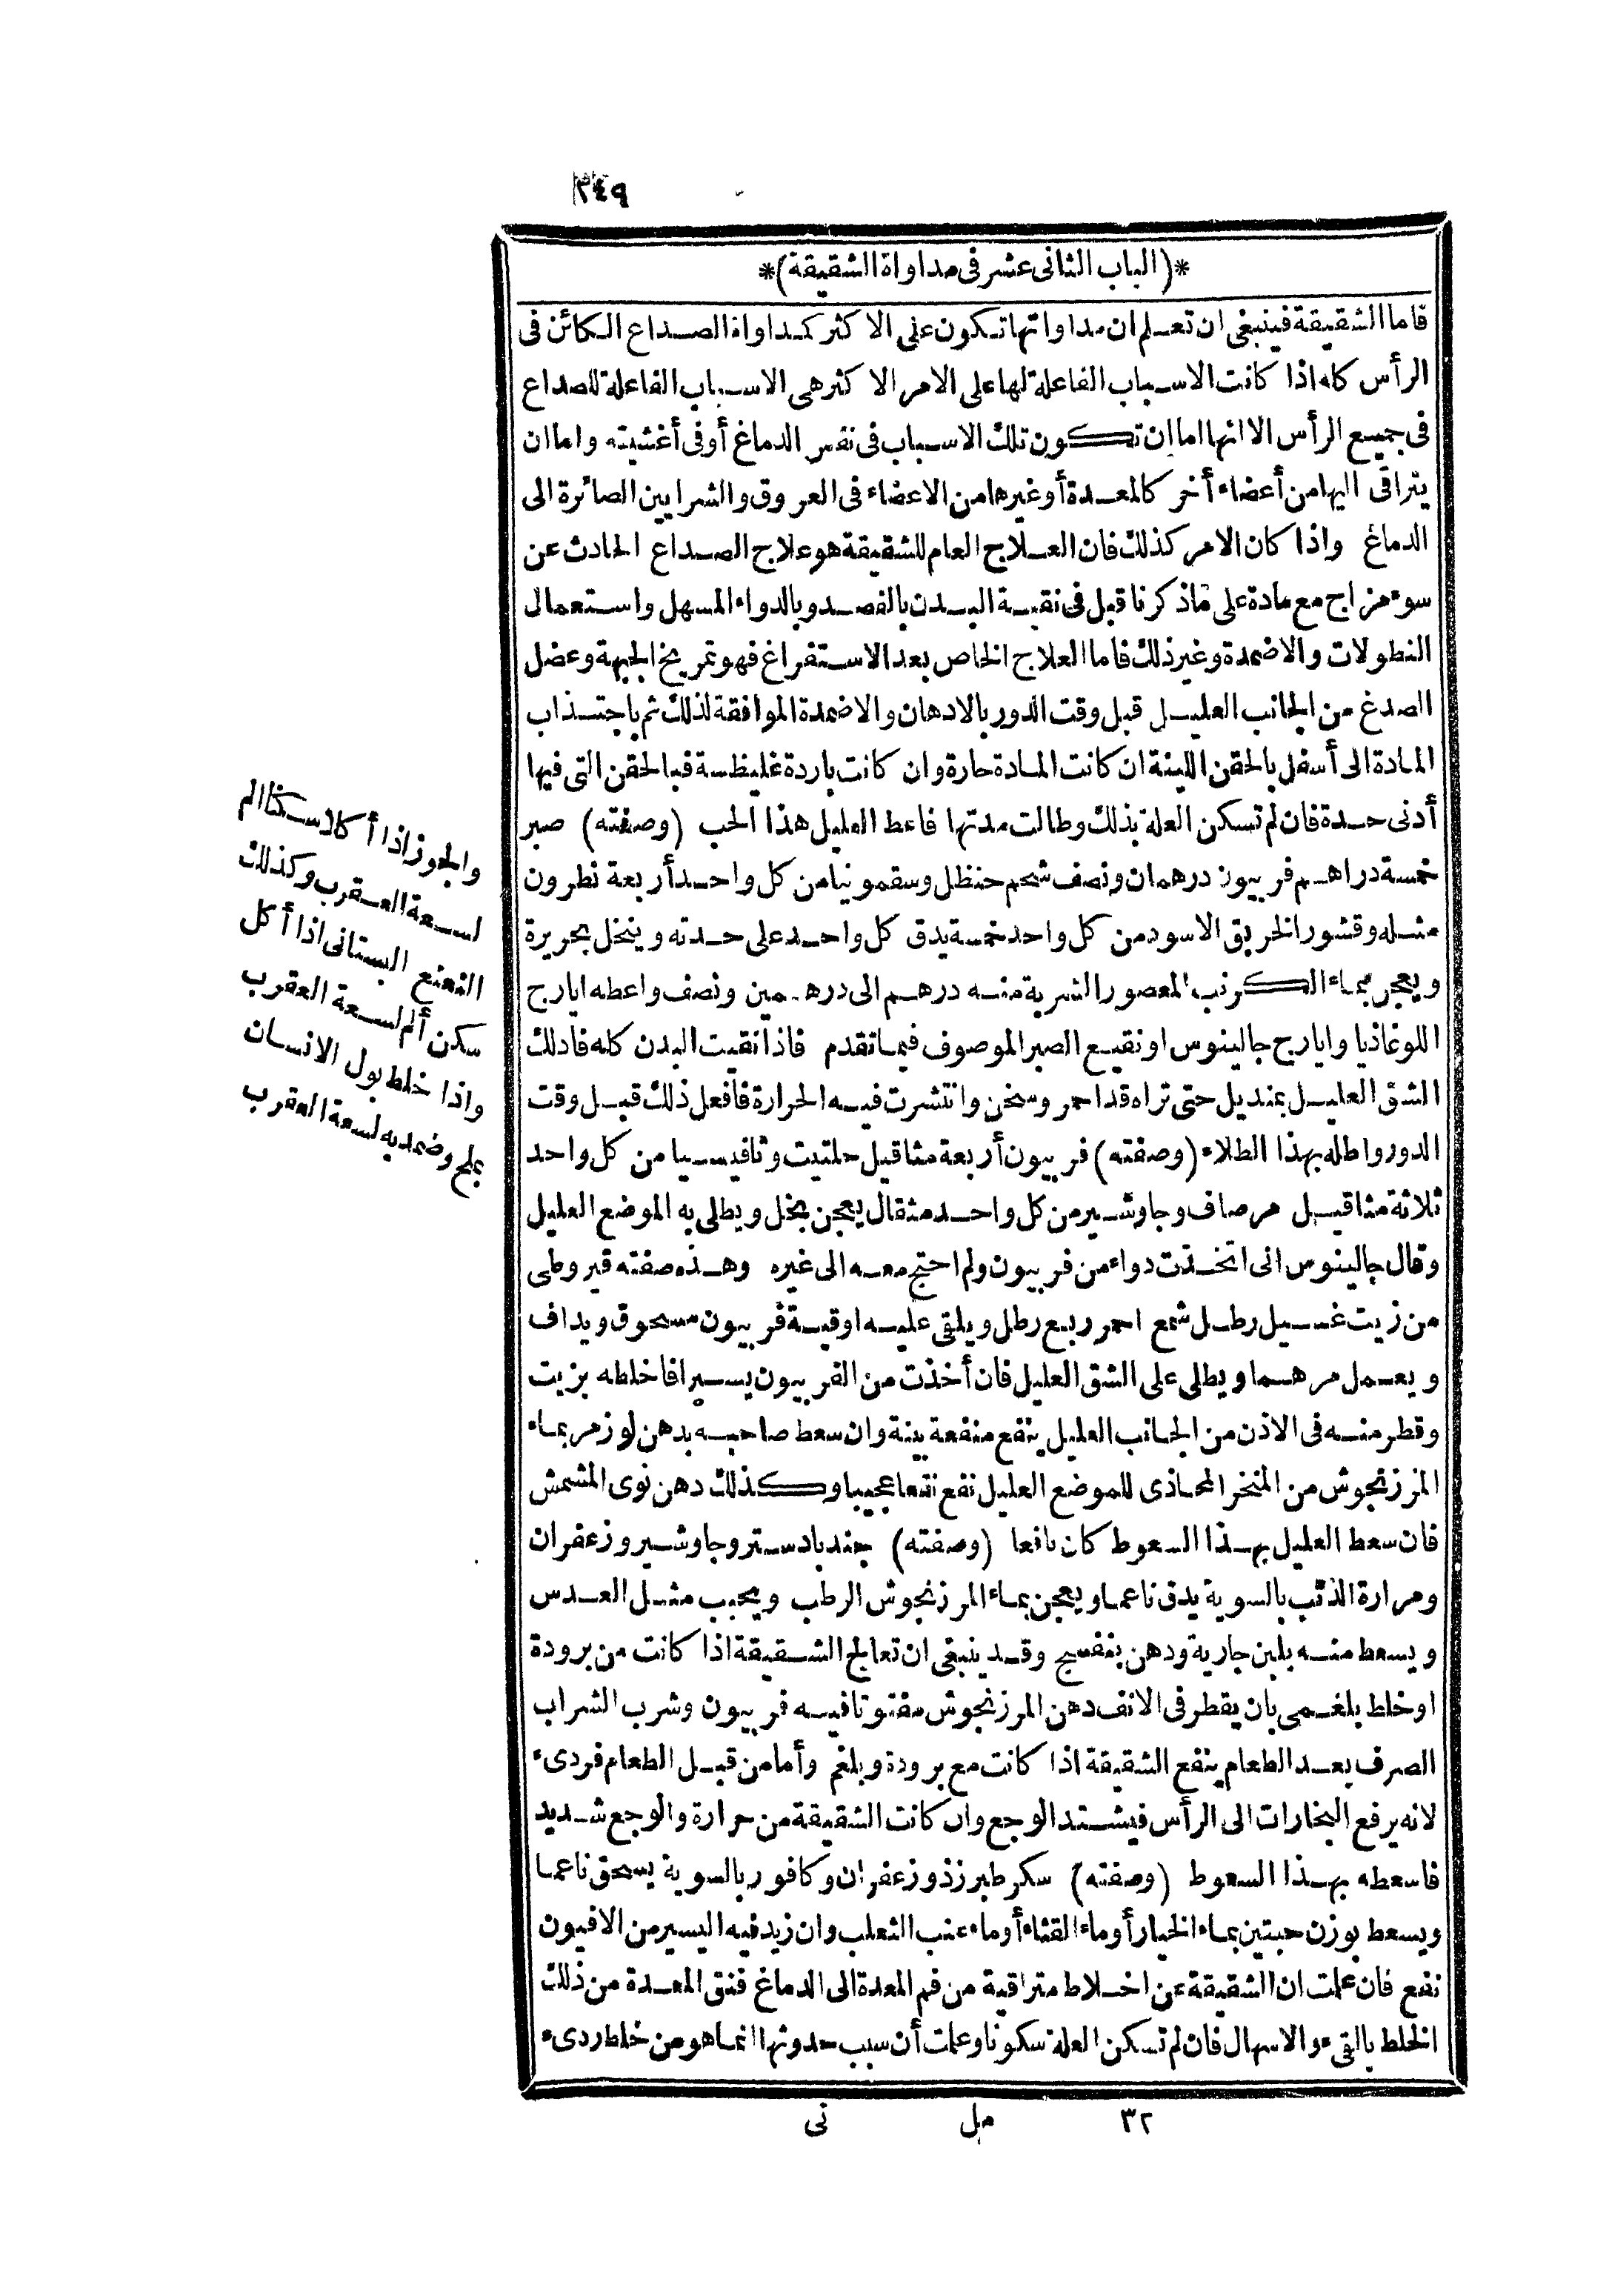 ٢٤٩
*(الباب الثانى عشر فى مداواة الشقيقة)*
فاما الشقيقة فينبغى ان تعلم ان مداواتها تكون على الاكثر كمداواة الصداع الكائن فى
الرأس كله اذا كانت الاسباب الفاعلة لها على الامر الاكثر هى الاسباب الفاعلة للصداع
فى جميع الرأس الا انها اما ان تكون تلك الاسباب فى نفس الدماغ أو فى أغشيته واما ان
يتراقى اليها من أعضاء أخر كالمعدة أو غيرها من الاعضاء فى العروق والشرايين الصائرة الى
الدماغ واذا كان الامر كذلك فان العلاج العام للشقيقة هو علاج الصداع الحادث عن
سوء مزاج مع مادة على ماذكرنا قبل فى نقية البدن بالفصد وبالدواء المسهل واستعمال
النطولات والاضمدة وغير ذلك فاما العلاج الخاص بعد الاستفراغ فهو تمريخ الجبهة وعضل
الصدغ من الجانب العليل قبل وقت الدور بالادهان والاضمدة الموافقة لذلك ثم باجتذاب
المادة الى أسفل بالحقن اللينة ان كانت المادة حارة وان كانت باردة غليظة فبالحقن التى فيها
أدنى حدة فان لم تسكن العلة بذلك وطالت مدتها فاعط العليل هذا الحب (وصفته) صبر
خمسة دراهم فربيون درهمان ونصف شحم حنظل وسقمونيا من كل واحد أربعة نطرون
مثله وقشور الخربق الاسود من كل واحد خمسة يدق كل واحد على حدته وينخل بحريرة
ويعجن بماء الكرنب المعصور الشربة منه درهم الى درهمين ونصف واعطه ايارج
اللوغاذيا وايارج جالينوس او نقيع الصبر الموصوف فيما تقدم فاذا نقيت البدن كله فادلك
الشق العليل بمنديل حتى تراه قد احمر وسخن وانتشرت فيه الحرارة فافعل ذلك قبل وقت
الدور واطله بهذا الطلاء (وصفته) فربيون أربعة مثاقيل حلتيت وثافيسيا من كل واحد
ثلاثة مثاقيل مر صاف وجاوشير من كل واحد مثقال يعجن بخل ويطلى به الموضع العليل
وقال جالينوس انى اتخذت دواء من فربيون ولم احتج معه الى غيره وهذه صفته قيروطى
من زيت غسيل رطل شمع احمر ربع رطل ويلقى عليه اوقية فربيون مسحوق ويداف
ويعمل مرهما ويطلى على الشق العليل فان أخذت من الفربيون يسيرا فاخلطه بزيت
وقطر منه فى الاذن من الجانب العليل ينفع منفعة بينة وان سعط صاحبه بدهن لوز مر بماء
المرزنجوش من المنخر المحاذى للموضع العليل نفع نفعا عجيبا وكذلك دهن نوى المشمش
فان سعط العليل بهذا السعوط كان نافعا (وصفته) جندبادستر وجاوشير وزعفران
ومرارة الذئب بالسوية يدق ناعما ويعجن بماء المرزنجوش الرطب ويحبب مثل العدس
ويسعط منه بلبن جارية ودهن بنفسج وقد ينبغى ان تعالج الشقيقة اذا كانت من برودة
او خلط بلغمى بان يقطر فى الانف دهن المرزنجوش مفتوتا فيه فربيون وشرب الشراب
الصرف بعد الطعام ينفع الشقيقة اذا كانت مع برودة وبلغم وأما من قبل الطعام فردىء
لانه يرفع البخارات الى الرأس فيشتد الوجع وان كانت الشقيقة من حرارة والوجع شديد
فاسعطه بهذا السعوط (وصفته) سكر طبرزذ وزعفران وكافور بالسوية يسحق ناعما
ويسعط بوزن حبتين بماء الخيار أو ماء القثاء أو ماء عنب الثعلب وان زيد فيه اليسير من الافيون
نفع فان علمت ان الشقيقة عن اخلاط متراقية من فم المعدة الى الدماغ فنق المعدة من ذلك
الخلط بالقىء والاسهال فان لم تسكن العلة سكونا وعلمت أن سبب حدوثها انما هو من خلط ردىء
٣٢ مل نى
والجوز اذا أكلا سكنا الم
لسعة العقرب وكذلك
النعنع البستانى اذا أكل
سكن ألم لسعة العقرب
واذا خلط بول الانسان
بملح وضمد به لسعة العقرب